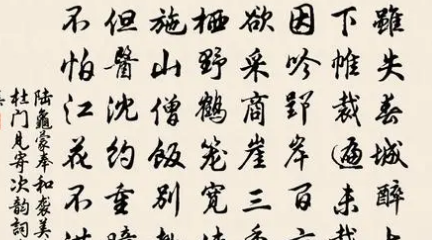 雖失春城醉上
下帷裁遍未裁
因吟郢岸百
欲采商崖三秀
栖野鶴籠寬
施山僧飯別
但醫沈約重瞳
不怕江花不
陸龜蒙奉和襲美
杜門見寄次韻詞